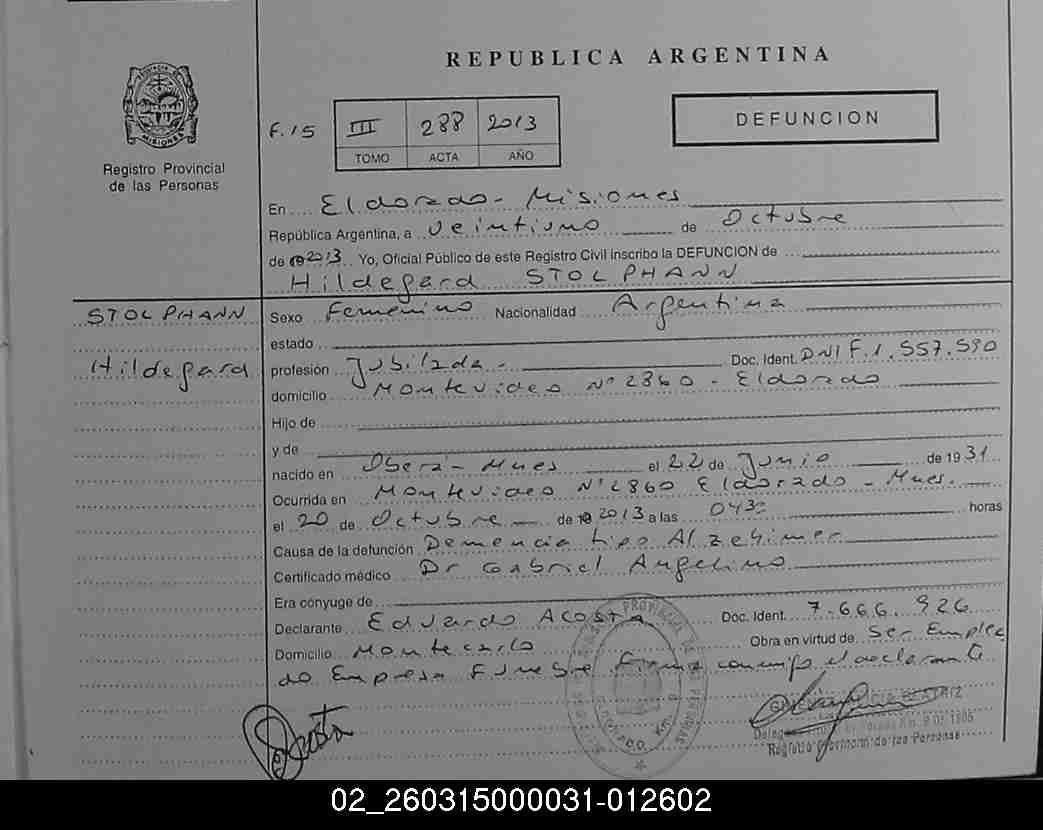 REPUBLICA ARGENTINA
MISIONES
Registro Provincial
de las Personas
F. 15 III 288 2013
TOMO ACTA AÑO
DEFUNCION
En Eldorado - Misiones
República Argentina, a veintiuno de Octubre
de 2013 Yo, Oficial Público de este Registro Civil inscribo la DEFUNCION de
Hildegard STOLPHANN
STOLPHANN
Hildegard
Sexo Femenino Nacionalidad Argentina
estado
profesión Jubilada - Doc. Ident. DNI F. 1.557.590
domicilio Montevideo N° 2860 - Eldorado
Hijo de
y de
nacido en Oberá - Mnes el 22 de Junio de 1931
Ocurrida en Montevideo N° 2860 Eldorado - Mnes.
el 20 de Octubre de 2013 a las 0430 horas
Causa de la defunción Demencia tipo Alzehimer
Certificado médico Dr Gabriel Angelino
Era cónyuge de
Declarante Eduardo ACOSTA Doc. Ident. 7.666.926
Domicilio Montecarlo Obra en virtud de Ser Emplea
do Empresa Funebre Firma conmigo el declarante
Acosta
Registro Provincial de las Personas
02_260315000031-012602